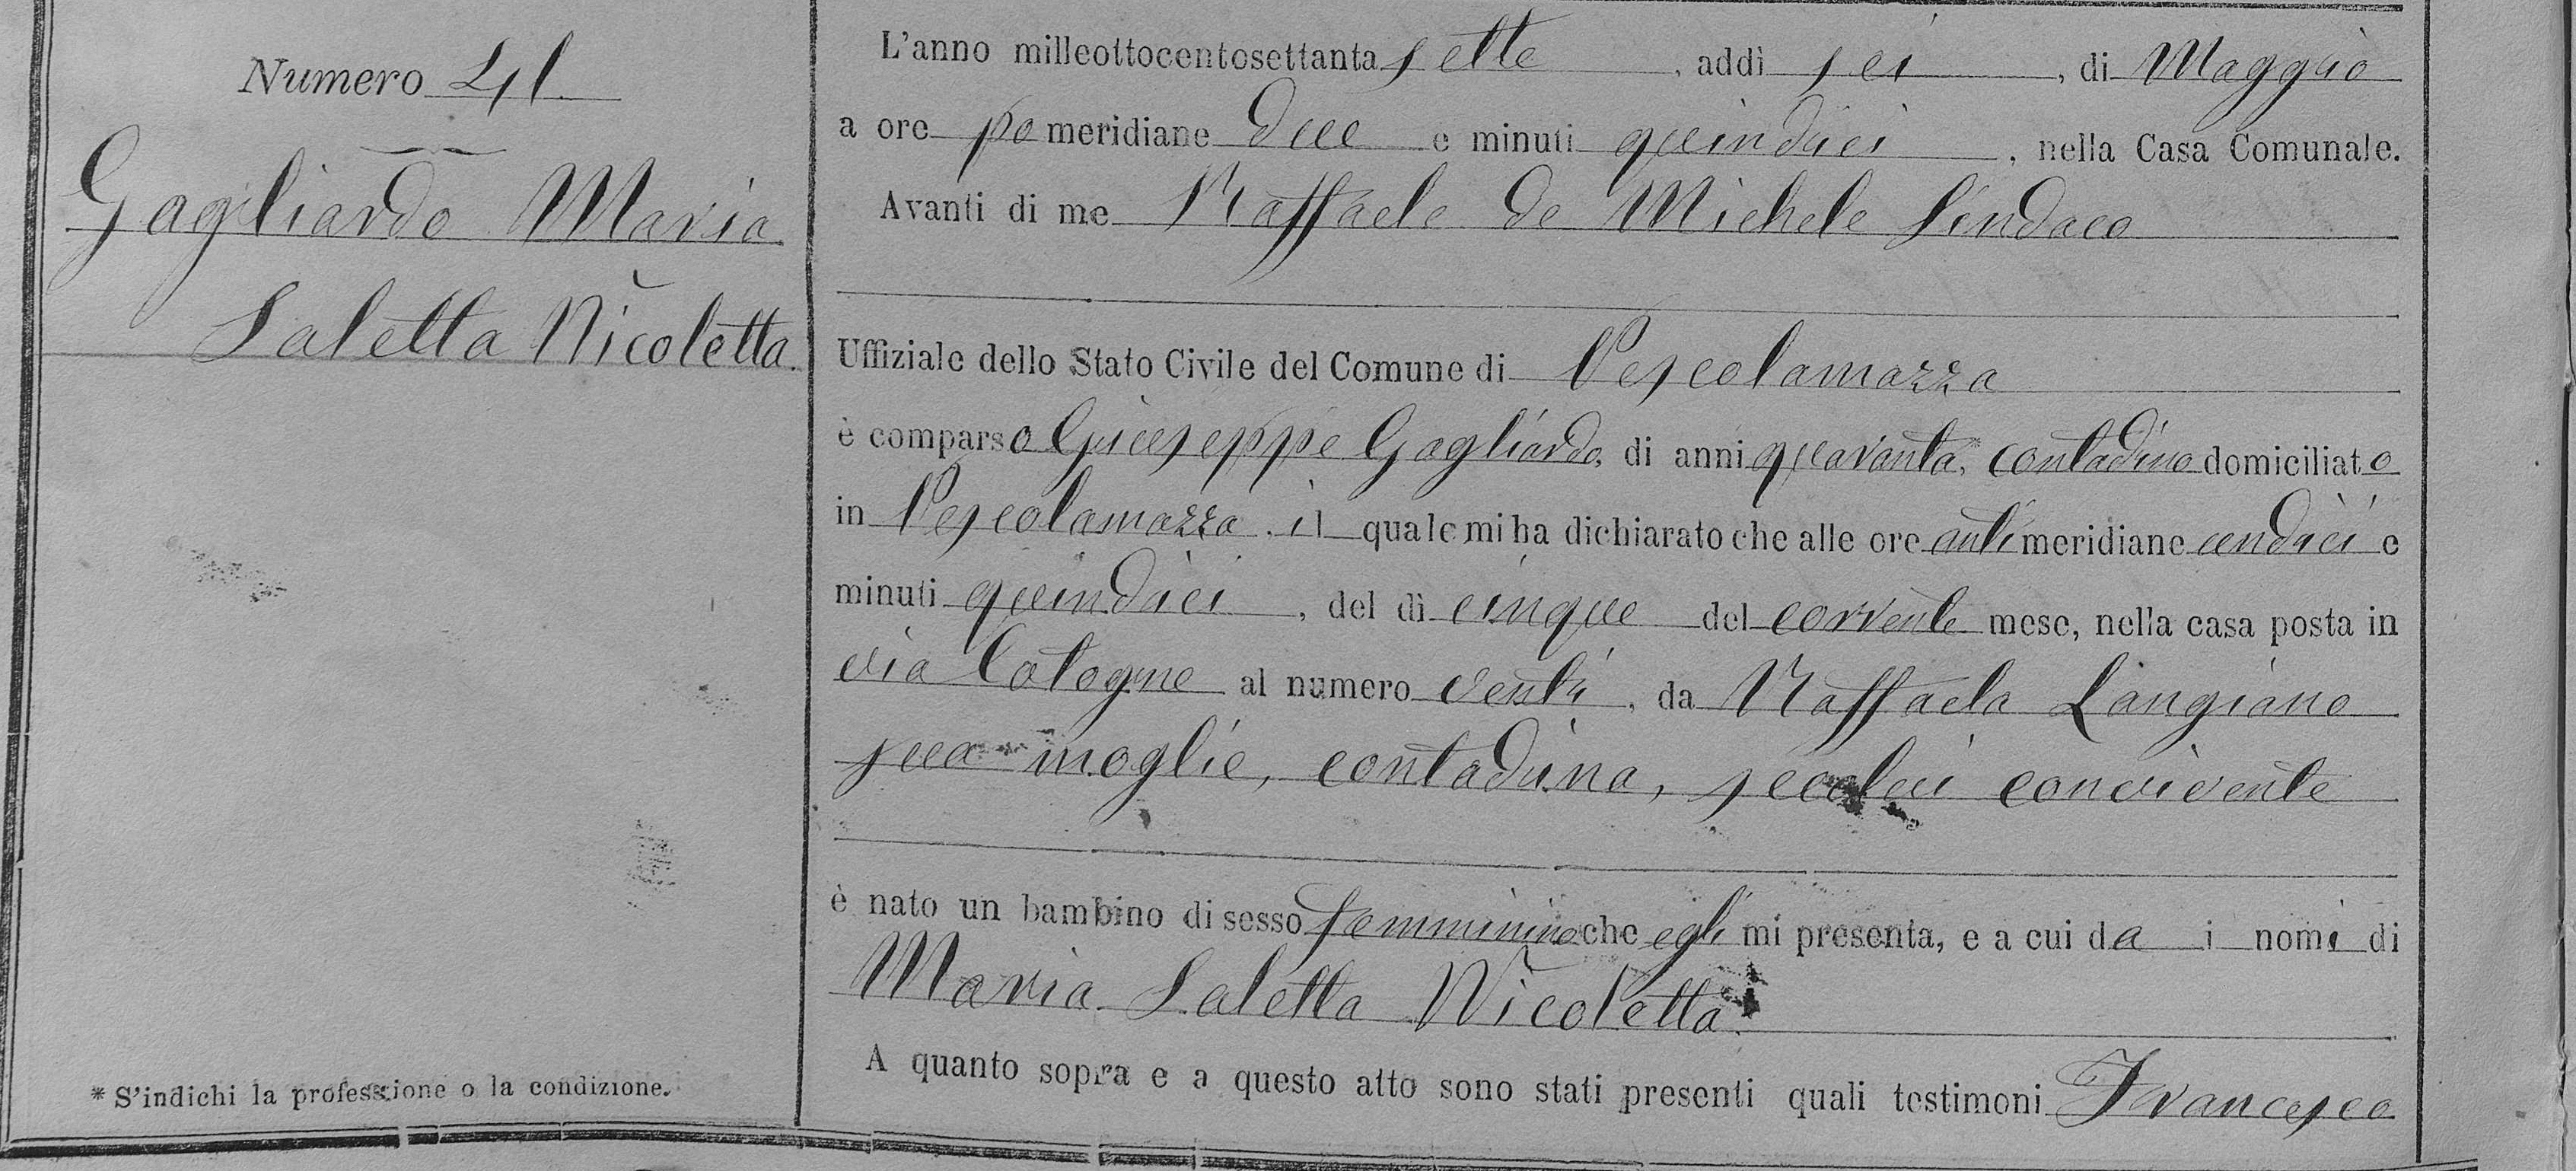 Numero 41
Gagliardo Maria
Saletta Nicoletta.
* S'indichi la professione o la condizione.
L'anno milleottocentosettantasette, addì sei, di Maggio
a ore pomeridiane due e minuti quindici, nella Casa Comunale.
Avanti di me Raffaele de Michele Sindaco
Uffiziale dello Stato Civile del Comune di Pescolamazza
è comparso Giuseppe Gagliardo, di anni quaranta, contadino domiciliato
in Pescolamazza, il quale mi ha dichiarato che alle ore antimeridiane undici e
minuti quindici, del dì cinque del corrente mese, nella casa posta in
via Cotogne al numero venti, da Raffaela Langiano
sua moglie, contadina, secolui convivente
è nato un bambino di sesso femminino che egli mi presenta, e a cui da i nomi di
Maria Saletta Nicoletta.
A quanto sopra e a questo atto sono stati presenti quali testimoni Francesco